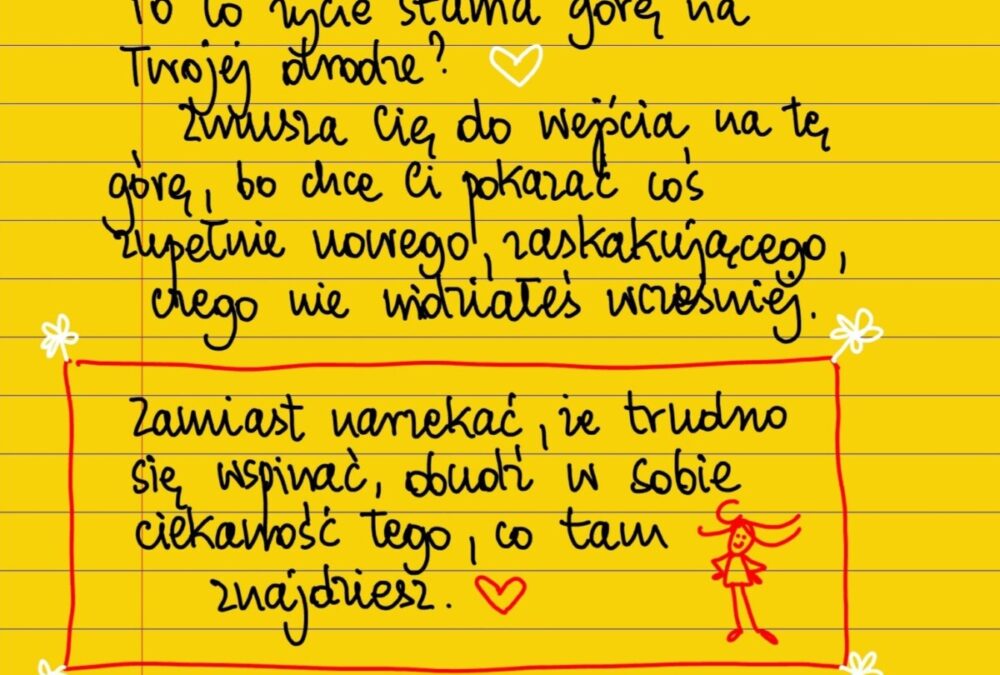 Po co życie stawia górę na
Twojej drodze?
Zmusza Cię do wejścia na tę
górę, bo chce Ci pokazać coś
zupełnie nowego, zaskakującego,
czego nie widziałeś wcześniej.
Zamiast narzekać, że trudno
się wspinać, obudź w sobie
ciekawość tego, co tam
znajdziesz.